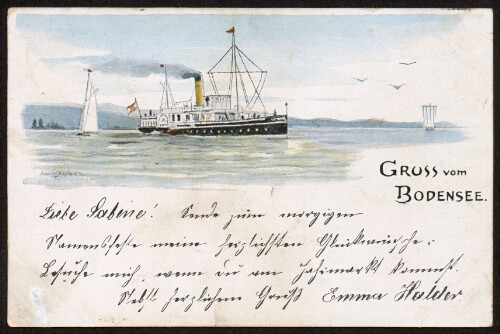 GRUSS vom
BODENSEE.
Liebe Sabine! Sende zum morgigen
Namensfeste meine herzlichsten Glückwünsche.
Besuche mich, wenn du am Jahrmarkt kommst.
Nebst herzlichem Gruß Emma Halder